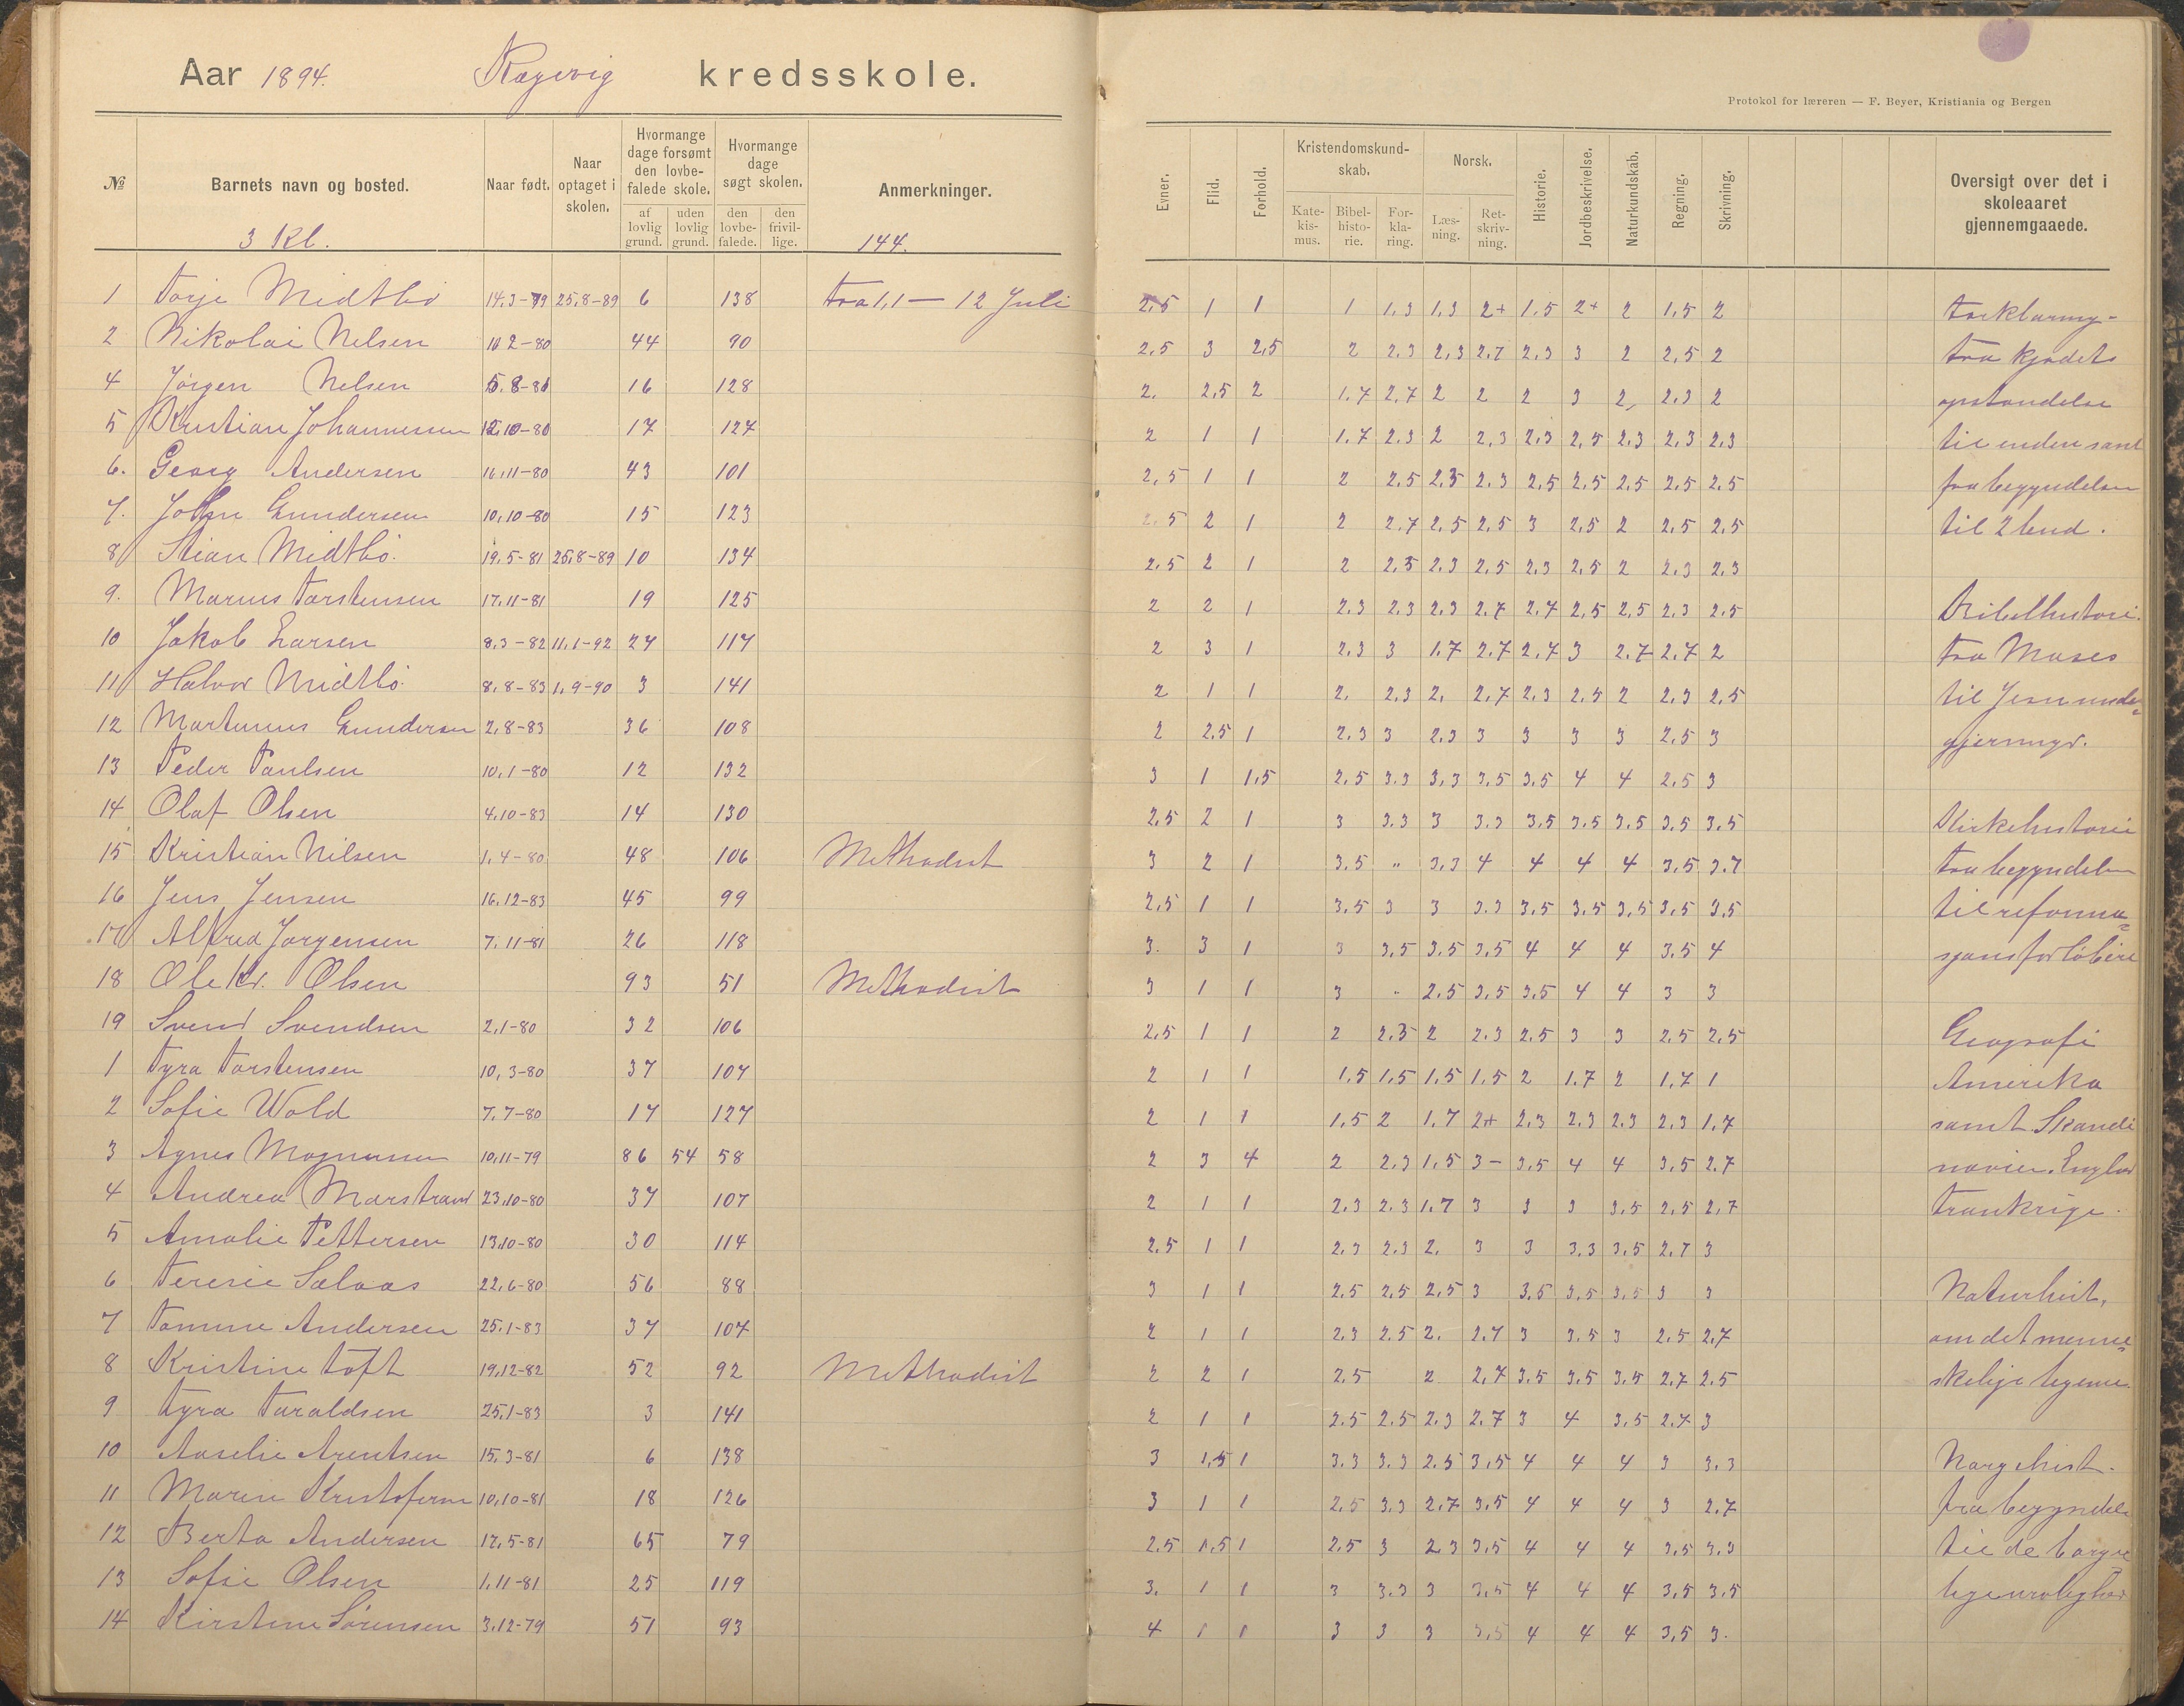 Aar 1894. kredsskole.
Protokol for læreren — F. Beyer, Kristiania og Bergen
№ Barnets navn og bosted. Naar født. Naar optaget i skolen. Hvormange dage forsømt den lovbefalede skole. af lovlig grund. uden lovlig grund. Hvormange dage søgt skolen. den lovbefalede. den frivillige. Anmerkninger. Evner. Flid. Forhold. Kristendomskundskab. Katekismus. Bibelhistorie. Forklaring. Norsk. Læsning. Retskrivning. Historie. Jordbeskrivelse. Naturkundskab. Regning. Skrivning. Oversigt over det i skoleaaret gjennemgaaede.
3 Kl. 144.
1 Torje Midtbö 14.3-79 25.8-89 6 138 Fra 1.1 — 12 Juli 2,5 1 1 1 1.3 1.3 2+ 1.5 2+ 2 1,5 2 Forklaring-
2 Nikolai Nelsen 2-80 44 90 2,5 3 2,5 2 2.3 2,3 2.7 2.3 3 2 2,5 2 fra kjødets
4 Jörgen Nelsen 16 128 2. 2,5 2 1.7 2.7 2 2 2 3 2, 2.3 2 opstandelse
5 Kristian Johannesen 10-80 17 127 2 1 1 1.7 2.3 2 2,3 2.3 2,5 2.3 2.3 2.3 til enden samt
6. Georg Andersen 16.11-80 43 101 2,5 1 1 2 2,5 2,5 2.3 2,5 2,5 2,5 2,5 2.5 fra begyndelsen
7. John Gundersen 10,10-80 15 123 2.5 2 1 2 2.7 2,5 2,5 3 2,5 2 2,5 2,5 til 2 bud.
8 Stian Midtbö. 19.5-81 25.8-89 10 134 2.5 2 1 2 2,5 2.3 2,5 2.3 2,5 2 2.3 2.3
9. Marius Torstensen 17.11-81 19 125 2 2 1 2.3 2.3 2.3 2.7 2.7 2,5 2,5 2.3 2.5 Bibelhistorie.
10 Jakob Larsen 8.3-82 11.1-92 27 117 2 3 1 2.3 3 1.7 2.7 2.7 3 2.7 2.7 2 fra Moses
11 Halvor Midtbö 8.8-83 1.9-90 3 141 2 1 1 2. 2.3 2. 2.7 2.3 2.5 2 2.3 2.5 til Jesu under=
12 Martinius Gundersen 2.8-83 36 108 2 2.5 1 2.3 3 2.3 3 3 3 3 2.5 3 gjerninger.
13 Peder Paulsen 10.1-80 12 132 3 1 1,5 2.5 3.3 3,3 3.5 3.5 4 4 2.5 3
14 Olaf Olsen 4.10-83 14 130 2.5 2 1 3 3.3 3 3.3 3.5 3.5 3.5 3.5 3.5 Kirkehistorie
15 Kristian Nilsen 1.4-80 48 106 Methodist 3 2 1 3.5 „ 3.3 4 4 4 4 3.5 3.7 fra begyndelsen
16 Jens Jensen 16.12-83 45 99 2.5 1 1 3.5 3 3 3.3 3.5 3.5 3.5 3.5 3.5 til reforma=
17 Alfred Jorgensen 7.11-81 26 118 3. 3 1 3 3.5 3.5 3.5 4 4 4 3.5 4 sjonsforlöbere
18 Ole Kr. Olsen 93 51 Methodist 3 1 1 3 „ 2.5 3.5 3.5 4 4 3 3
19 Svend Svendsen 2.1-80 32 106 2.5 1 1 2 2.3 2 2.3 2.5 3 3 2.5 2.5 Geografi
1 Tyra Torstensen 10.3-80 37 107 2 1 1 1.5 1.5 1.5 1.5 2 1.7 2 1.7 1 Amerika
2 Sofie Wold 7.7-80 17 127 2 1 1 1.5 2 1.7 2+ 2.3 2.3 2.3 2.3 1.7 samt Skandi
3 Agnes Magnussen 10.11-79 86 54 58 2 3 4 2 2.3 1.5 3- 3.5 4 4 3.5 2.7 navien. Englan
4 Andrea Marstrand 23.10-80 37 107 2 1 1 2.3 2.3 1.7 3 3 3 3.5 2.5 2.7 Frankrige.
5 Amalie Pettersen 13.10-80 30 114 2.5 1 1 2.3 2.3 2. 3 3 3.3 3.5 2.7 3
6 Teresie Salvas 22.6-80 56 88 3 1 1 2.5 2.5 2.5 3 3.5 3.5 3.5 3 3 Naturhist,
7 Tomine Andersen 25.1-83 37 107 2 1 1 2.3 2.5 2. 2.7 3 3.5 3 2.5 2.7 om det menne=
8 Kristine Toft 19.12-82 52 92 Methodist 2 2 1 2.5 2 2.7 3.5 3.5 3.5 2.7 2.5 skelige legeme.
9 Tyra Taraldsen 25.1-83 3 141 2 1 1 2.5 2.5 2.3 2.7 3 4 3.5 2.7 3
10 Aaselie Arentsen 15.3-81 6 138 3 1,5 1 3.3 3.3 2.5 3,5 4 4 4 3 3.3 Norg. hist.
11 Maren Kristofersen 10.10-81 18 126 3 1 1 2.5 3.3 2.7 3.5 4 4 4 3 2.7 fra begyndels
12 Berta Andersen 17.5-81 65 79 2.5 1.5 1 2.5 3 2.3 3.5 4 4 4 3.5 3.3 til de borger
13 Sofie Olsen 1.11-81 25 119 3. 1 1 3 3.3 3 3.5 4 4 4 3.5 3.5 lige uroligheder
14 Kirstine Sörensen 3.12-79 51 93 4 1 1 3 3 3 3.5 4 4 4 3.5 3.